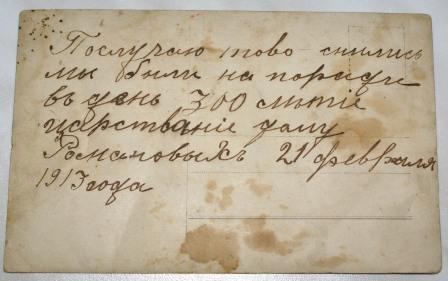 Послучаю тово снились
мы были на пориди
въ день 300 сльтіе
царствваніе дому
Романовыхъ 21 февраля
1913 года